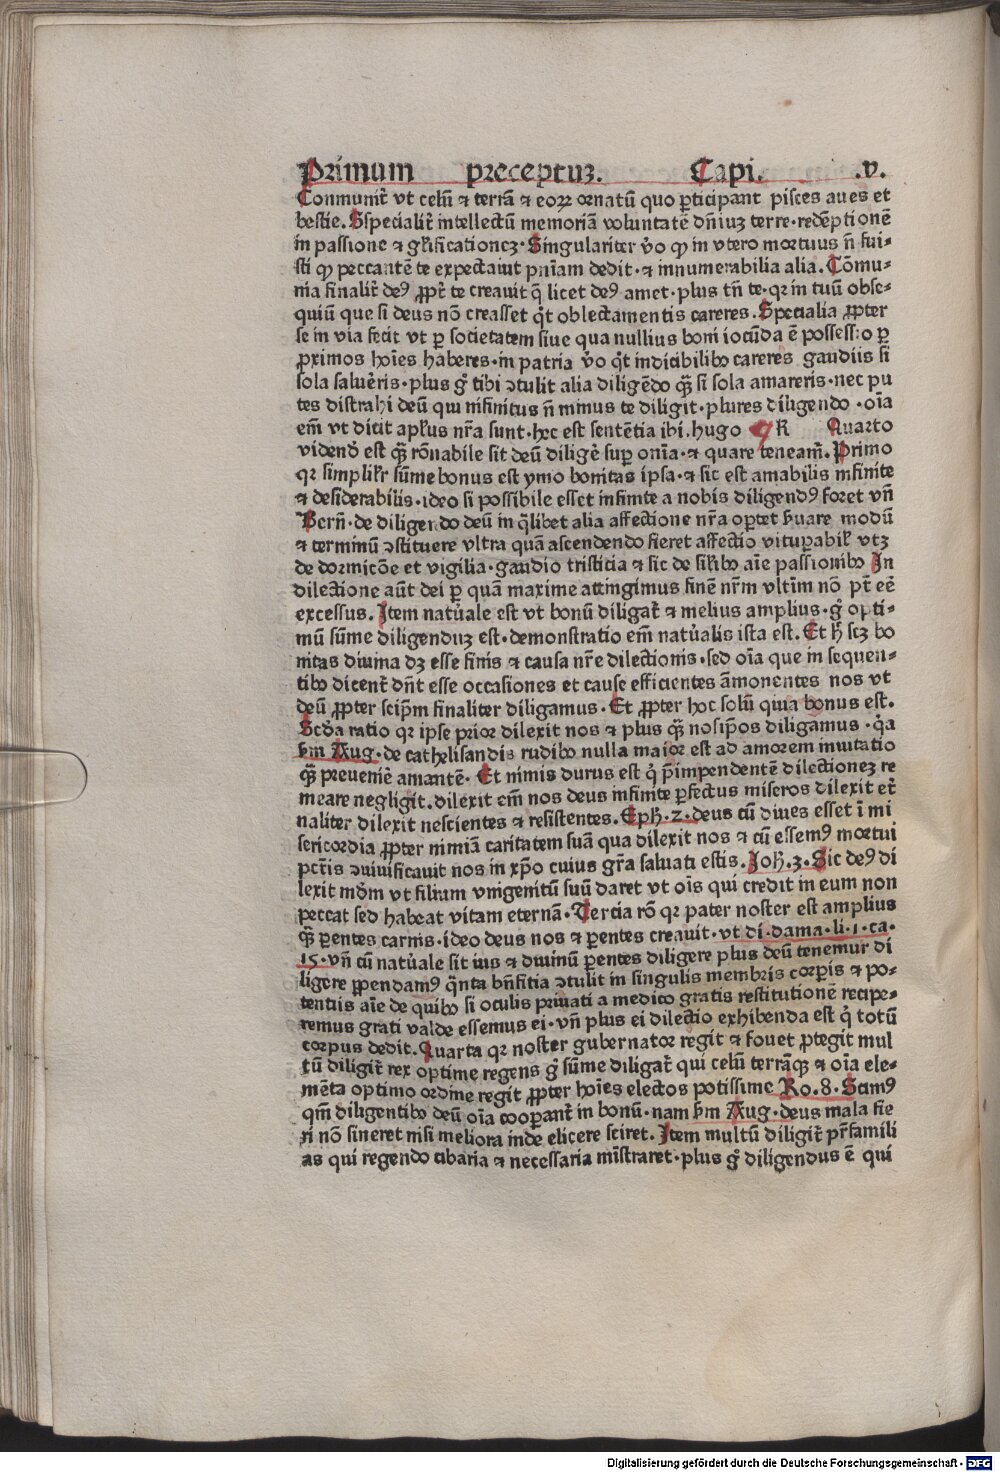 Primum preceptuꝫ. Capi. .v.
Conmunit᷑ vt celū ⁊ terrā ⁊ eoꝝ ornatū quo ꝑticipant pisces aues et
bestie. Sspecialit᷑ intellectū memoriā voluntatē dn̄iuꝫ terre·redēptionē
in passione ⁊ gl̄ificationeꝫ· Singulariter v̓o ꝙ in vtero mortuus n̄ fui⸗
sti ꝙ peccantē te expectauit pn̄iam dedit·⁊ innumerabilia alia. Cōmu⸗
nia finalit᷑ deꝰ ꝓpt᷑ te creauit q̄ licet deꝰ amet·plus tn̄ te·qꝛ in tuū obse⸗
quiū que si deus nō creasset q̓t oblectamentis careres. Specialia ꝓpter
se in via fecit vt ꝑ societatem siue qua nullius boni iocūda ē possessio ꝑ
ꝓximos hoīes haberes·in patria v̓o q̓t indicibilibꝰ careres gaudiis si
sola saluēris·plus g̊ tibi ꝯtulit alia diligēdo qꝫ̄ si sola amareris·nec pu
tes distrahi deū qui infinitus n̄ minus te diligit·plures diligendo·oīa
em̄ vt dicit apl̄us nr̄a sunt·hec est sentētia ibi.hugo ¶ R Quarto
videnď est qꝫ̄ rōnabile sit deū diligē suꝑ om̄ia·⁊ quare teneam̄. Primo
qꝛ simplikr sūme bonus est ymo bonitas ipsa·⁊ sic est amabilis infinite
⁊ desiderabilis·ideo si possibile esset infinite a nobis diligendꝰ foret vn̄
Bern̄·de diligendo deū in q̄libet alia affectione nr̄a oꝑtet ẜuare modū
⁊ terminū ꝯstituere vltra quā ascendendo fieret affectio vituꝑabil᷑ vtꝫ
de dormicōe et vigilia·gaudio tristitia ⁊ sic de sil᷑ibꝰ aīe passionibꝰ In
dilectione aūt dei ꝑ quā maxime attingimus finē nr̄m vltīm nō pt᷑ eē
excessus. Item natu̓ale est vt bonū diligat᷑ ⁊ melius amplius·g̊ opti⸗
mū sūme diligenduꝫ est·demonstratio em̄ natu̓alis ista est. Et ħ scꝫ bo
nitas diuina dꝫ esse finis ⁊ causa nr̄e dilectionis·sed oīa que in sequen⸗
tibꝰ dicent᷑ dn̄t esse occasiones et cause efficientes āmonentes nos vt
deū ꝓpter seip̄m finaliter diligamus· Et ꝓpter hoc solū quia bonus est.
Scďa ratio qꝛ ipse prior dilexit nos ⁊ plus qꝫ̄ nosip̄os diligamus·q̓a
ẜm Aug·de cathelisandis rudibꝰ nulla maior est ad amorem inuitatio
qꝫ̄ preueniē amantē· Et nimis durus est q̓ p̄impendentē dilectioneꝫ re
meare negligit.dilexit em̄ nos deus infinite ꝑfectus miseros dilexit et᷑
naliter dilexit nescientes ⁊ resistentes. Eph̄·2·deus cū diues esset ī mi
sericordia ꝓpter nimiā caritatem suā qua dilexit nos ⁊ cū essemꝰ mortui
pct̄is ꝯuiuificauit nos in xp̄o cuius gr̄a saluati estis. Joh̄.3.Sic deꝰ di
lexit mďm vt filium vnigenitū suū daret vt oīs qui credit in eum non
peccat sed habeat vitam eternā·Tercia rō qꝛ pater noster est amplius
qꝫ̄ ꝑentes carnis·ideo deus nos ⁊ ꝑentes creauit·vt di·dama·li·1·ca·
15·vn̄ cū natu̓ale sit ius ⁊ diuinū ꝑentes diligere plus deū tenemur di
ligere ꝓpendamꝰ q̄nta bn̄fitia ꝯtulit in singulis membris corꝑis ⁊ po⸗
tentiis aīe de quibꝰ si oculis priuati a medico gratis restitutionē recipe⸗
remus grati valde essemus ei·vn̄ plus ei dilectio exhibenda est q̓ totū
corpus dedit.Quarta qꝛ noster gubernator regit ⁊ fouet ꝓtegit mul
tū diligit᷑ rex optime regens g̊ sūme diligat᷑ qui celū terrāqꝫ ⁊ oīa ele⸗
mēta optimo ordine regit ꝓpter hoīes electos potissime Ro.8.Scimꝰ
qm̄ diligentibꝰ deū oīa cooꝑant᷑ in bonū·nam ẜm Aug·deus mala fie
ri nō sineret nisi meliora inde elicere sciret. Item multū diligit᷑ pr̄famili
as qui regendo cibaria ⁊ necessaria mīstraret·plus g̊ diligendus ē qui
Digitalisierung gefördert durch die Deutsche Forschungsgemeinschaft - DFG